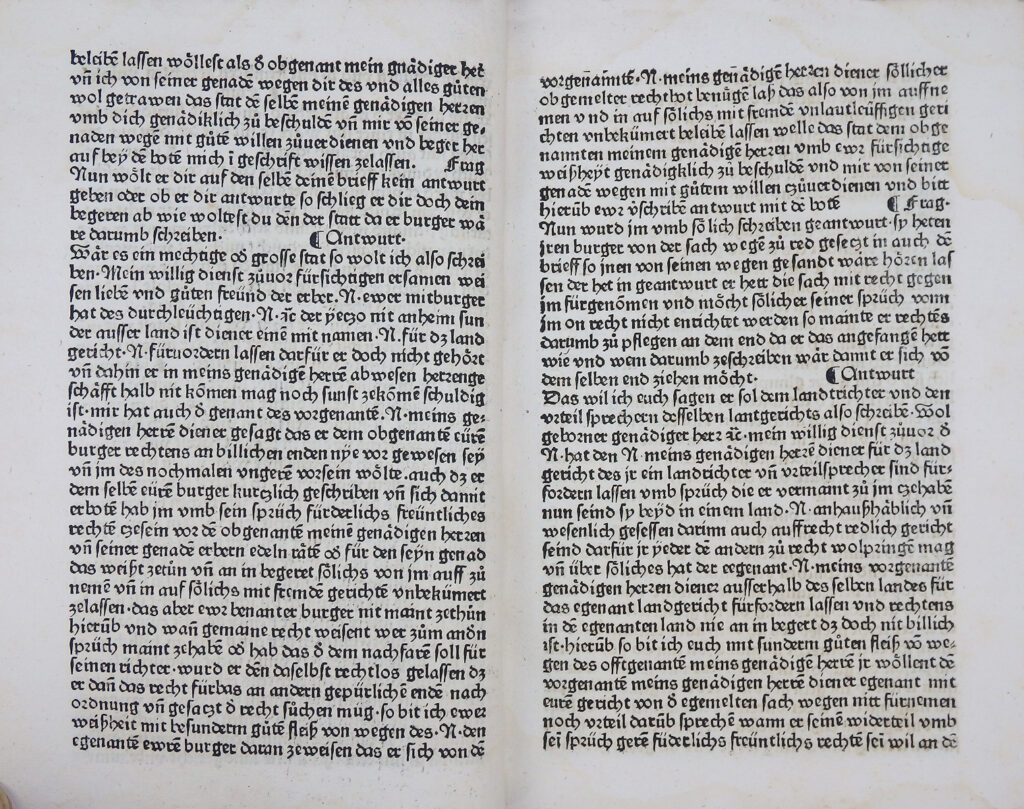 beleibē lassen wöllest als ð obgenant mein gnädiger her
vn̄ ich von seiner genadē wegen dir des vnd alles gůten
wol getrawen das stat dē selbē meinē genädigen herren
vmb dich genädiklich zů beschuldē vn̄ mir vō seiner ge⸗
naden wegē mit gůtē willen zůuerdienen vnd beger her
auf bey dē botē mich ī geschrift wissen zelassen. Frag
Nun wölt er dir auf den selbē deinē brieff kein antwurt
geben oder ob er dir antwurte so schlieg er dir doch dein
begeren ab wie woltest du dēn der statt da er burger wä
re darumb schreiben. ¶ Antwurt.
Wär es ein mechtige oð grosse stat so wolt ich also schrei
ben. Mein willig dienst zůuor fürsichtigen ersamen wei
sen liebē vnd gůten freünd der erber. N. ewer mitburger
hat des durchleüchtigen. N. ꝛc̄ der yeczo nit anheim sun
der ausser land ist diener einē mit namen. N. für dz land
gericht. N. fürvordern lassen darfür er doch nicht gehört
vn̄ dahin er in meins genädigē herrē abwesen herzenge
schäfft halb nit kōmen mag noch sunst zekomē schuldig
ist. mir hat auch ð genant des vorgenantē. N. meins ge⸗
nädigen herrē diener gesagt das er dem obgenantē eürē
burger rechtens an billichen enden nye vor gewesen sey
vn̄ jm des nochmalen vngerē vorsein wölte. auch dz er
dem selbē eürē burger kurczlich geschriben vn̄ sich damit
erbotē hab jm vmb sein sprüch fürderlichs freüntliches
rechtē czesein vor dē obgenantē meinē genädigen herren
vn̄ seiner genadē erbern edeln rätē oð für den seyn genad
das weißt zetůn vn̄ an in begeret sölichs von jm auff zů
nemē vn̄ in auf sölichs mit fremdē gerichtē vnbekümert
zelassen. das aber ewr benanter burger nit maint zethůn
hierüb vnd wan̄ gemaine recht weisent wer zům andn̄
sprüch maint zehabē oð hab das ð dem nachfarē soll für
seinen richter. wurd er dēn daselbst rechtlos gelassen dz
er dan̄ das recht fürbas an andern gepürlichē endē nach
ordnung vn̄ gesaczt ð recht sůchen müg. so bit ich ewer
weißheit mit besunderm gůtē fleiß von wegen des. N. den
egenantē ewrē burger daran zeweisen das er sich von dē
vorgenāntē. N. meins genädigē herren diener söllicher
obgemelter rechtbot benůgē laß das also von jm auffne
men vnd in auf sölichs mit fremdē vnlautleüffigen geri
chten vnbekümert beleibē lassen welle das stat dem obge
nannten meinem genädigē herren vmb ewr fürsichtige
weißheyt genädigklich zů beschuldē vnd mir von seiner
genadē wegen mit gůtem willen czůuerdienen vnd bitt
hierüb ewr v̈schribē antwurt mit dē botē ¶ Frag.
Nun wurd jm vmb sölich schreiben geantwurt. sy heten
jren burger von der sach wegē zů red gesetzt in auch dē
brieff so jnen von seinen wegen gesandt wäre hören las
sen der het in geantwurt er hett die sach mit recht gegen
jm fürgenōmen vnd möcht sölicher seiner sprüch vonn
jm on recht nicht entrichtet werden so mainte er rechtes
darumb zů pflegen an dem end da er das angefangē hett
wie vnd wem darumb zeschreiben wär damit er sich vō
dem selben end ziehen möcht. ¶ Antwurt
Das wil ich euch sagen er sol dem landtrichter vnd den
vrteil sprechern desselben lantgerichts also schreibē. Wol
geborner genädiger herr ꝛc̄. mein willig dienst zůuor ð
N. hat den N. meins genädigen herrē diener für dz land
gericht des jr ein landrichter vn̄ vrteilsprecher sind für⸗
fordern lassen vmb sprüch die er vermaint zů jm czehabē
nun seind sy beyd in einem land. N. anhaußhäblich vn̄
wesenlich gesessen darinn auch auffrecht redlich gericht
seind darfür jr yeder dē andern zů recht wolpringē mag
vn̄ über söliches hat der egenant. N. meins vorgenantē
genädigen herren diener ausserhalb des selben landes für
das egenant landgericht fürfordern lassen vnd rechtens
in dē egenanten land nie an in begert dz doch nit billich
ist. hierüb so bit ich euch mit sunderm gůten fleiß vō we⸗
gen des offtgenantē meins genädigen herrē jr wöllent dē
vorgenantē meins genädigen herrē diener egenant mit
eurē gericht von ð egemelten sach wegen nitt fürnemen
noch vrteil darüb sprechē wann er seinē widerteil vmb
sei sprüch gerē füderlichs freüntlichs rechtē sei wil an dē